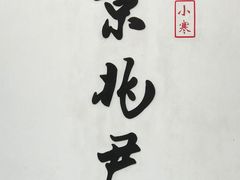 京兆尹
小寒